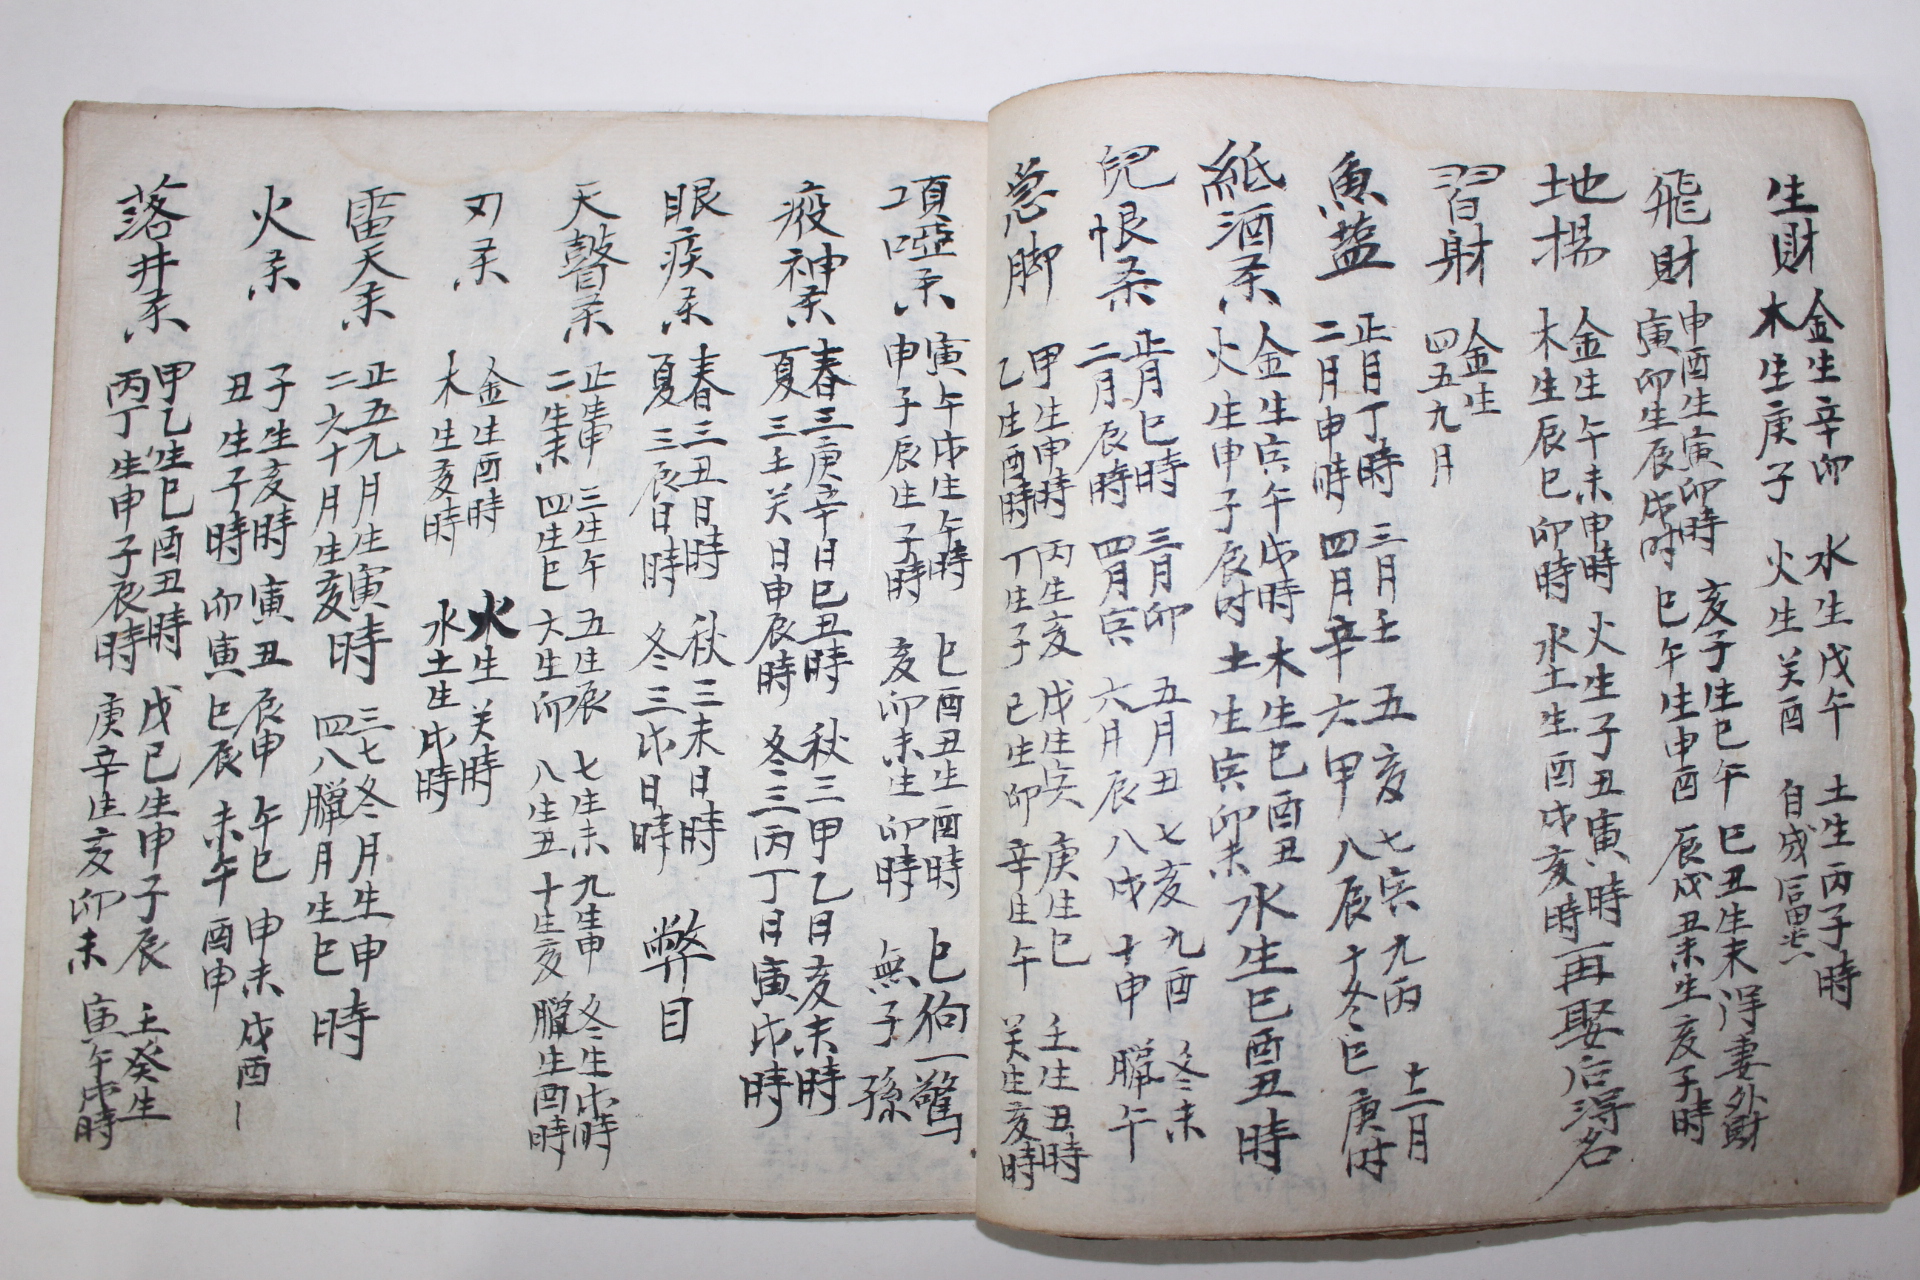 生財 金生辛卯 水生戊午 土生丙子時
木生庚子 火生癸酉 自成富
飛財 申酉生寅卯時 亥子生巳午 巳丑生未 得妻外財
寅卯生辰戌時 巳午生申酉 辰戌丑未生亥子時
地揚 金生午未申時 火生子丑寅時 再娶后得名
木生辰巳卯時 水土生酉戌亥時
習射 金生
四五九月
魚盐 正月丁時 三月壬 五亥 七寅 九丙 十二月
二月申時 四月辛 六甲 八辰 十冬巳 庚時
紙酒杀 金生寅午戌時 木生巳酉丑 水生巳酉丑時
火生申子辰时 土生寅卯未
兒恨杀 正月巳時 三月卯 五月丑 七亥 九酉 冬未
二月辰時 四月寅 六月辰 八戌 十申 臘午
急脚 甲生申時 丙生亥 戊生寅 庚生巳 壬生丑時
乙生酉時 丁生子 己生卯 辛生午 癸生亥時
項啞杀 寅午戌生午時 巳酉丑生酉時 巳狗一驚
申子辰生子時 亥卯未生卯時 無子孫
疫神杀 春三庚辛日巳丑時 秋三甲乙日亥未時
夏三壬癸日申辰時 冬三丙丁日寅戌時
眼疾杀 春三丑日時 秋三未日時 弊目
夏三辰日時 冬三戌日時
天聲杀 正生申 三生午 五生辰 七生未 九生申 冬生戌時
二生未 四生巳 六生卯 八生丑 十生亥 臘生酉時
刃杀 金生酉時 火生癸時
木生亥時 水土生戌時
雷天杀 正五九月生寅時 三七冬月生申時
二六十月生亥 四八臘月生巳
火杀 子生亥時 寅丑 辰申 午巳 申未 戌酉
丑生子時 卯寅 巳辰 未午 酉申
落井杀 甲乙生巳酉丑時 戊己生申子辰 壬癸生
丙丁生申子辰時 庚辛生亥卯未 寅午戌時